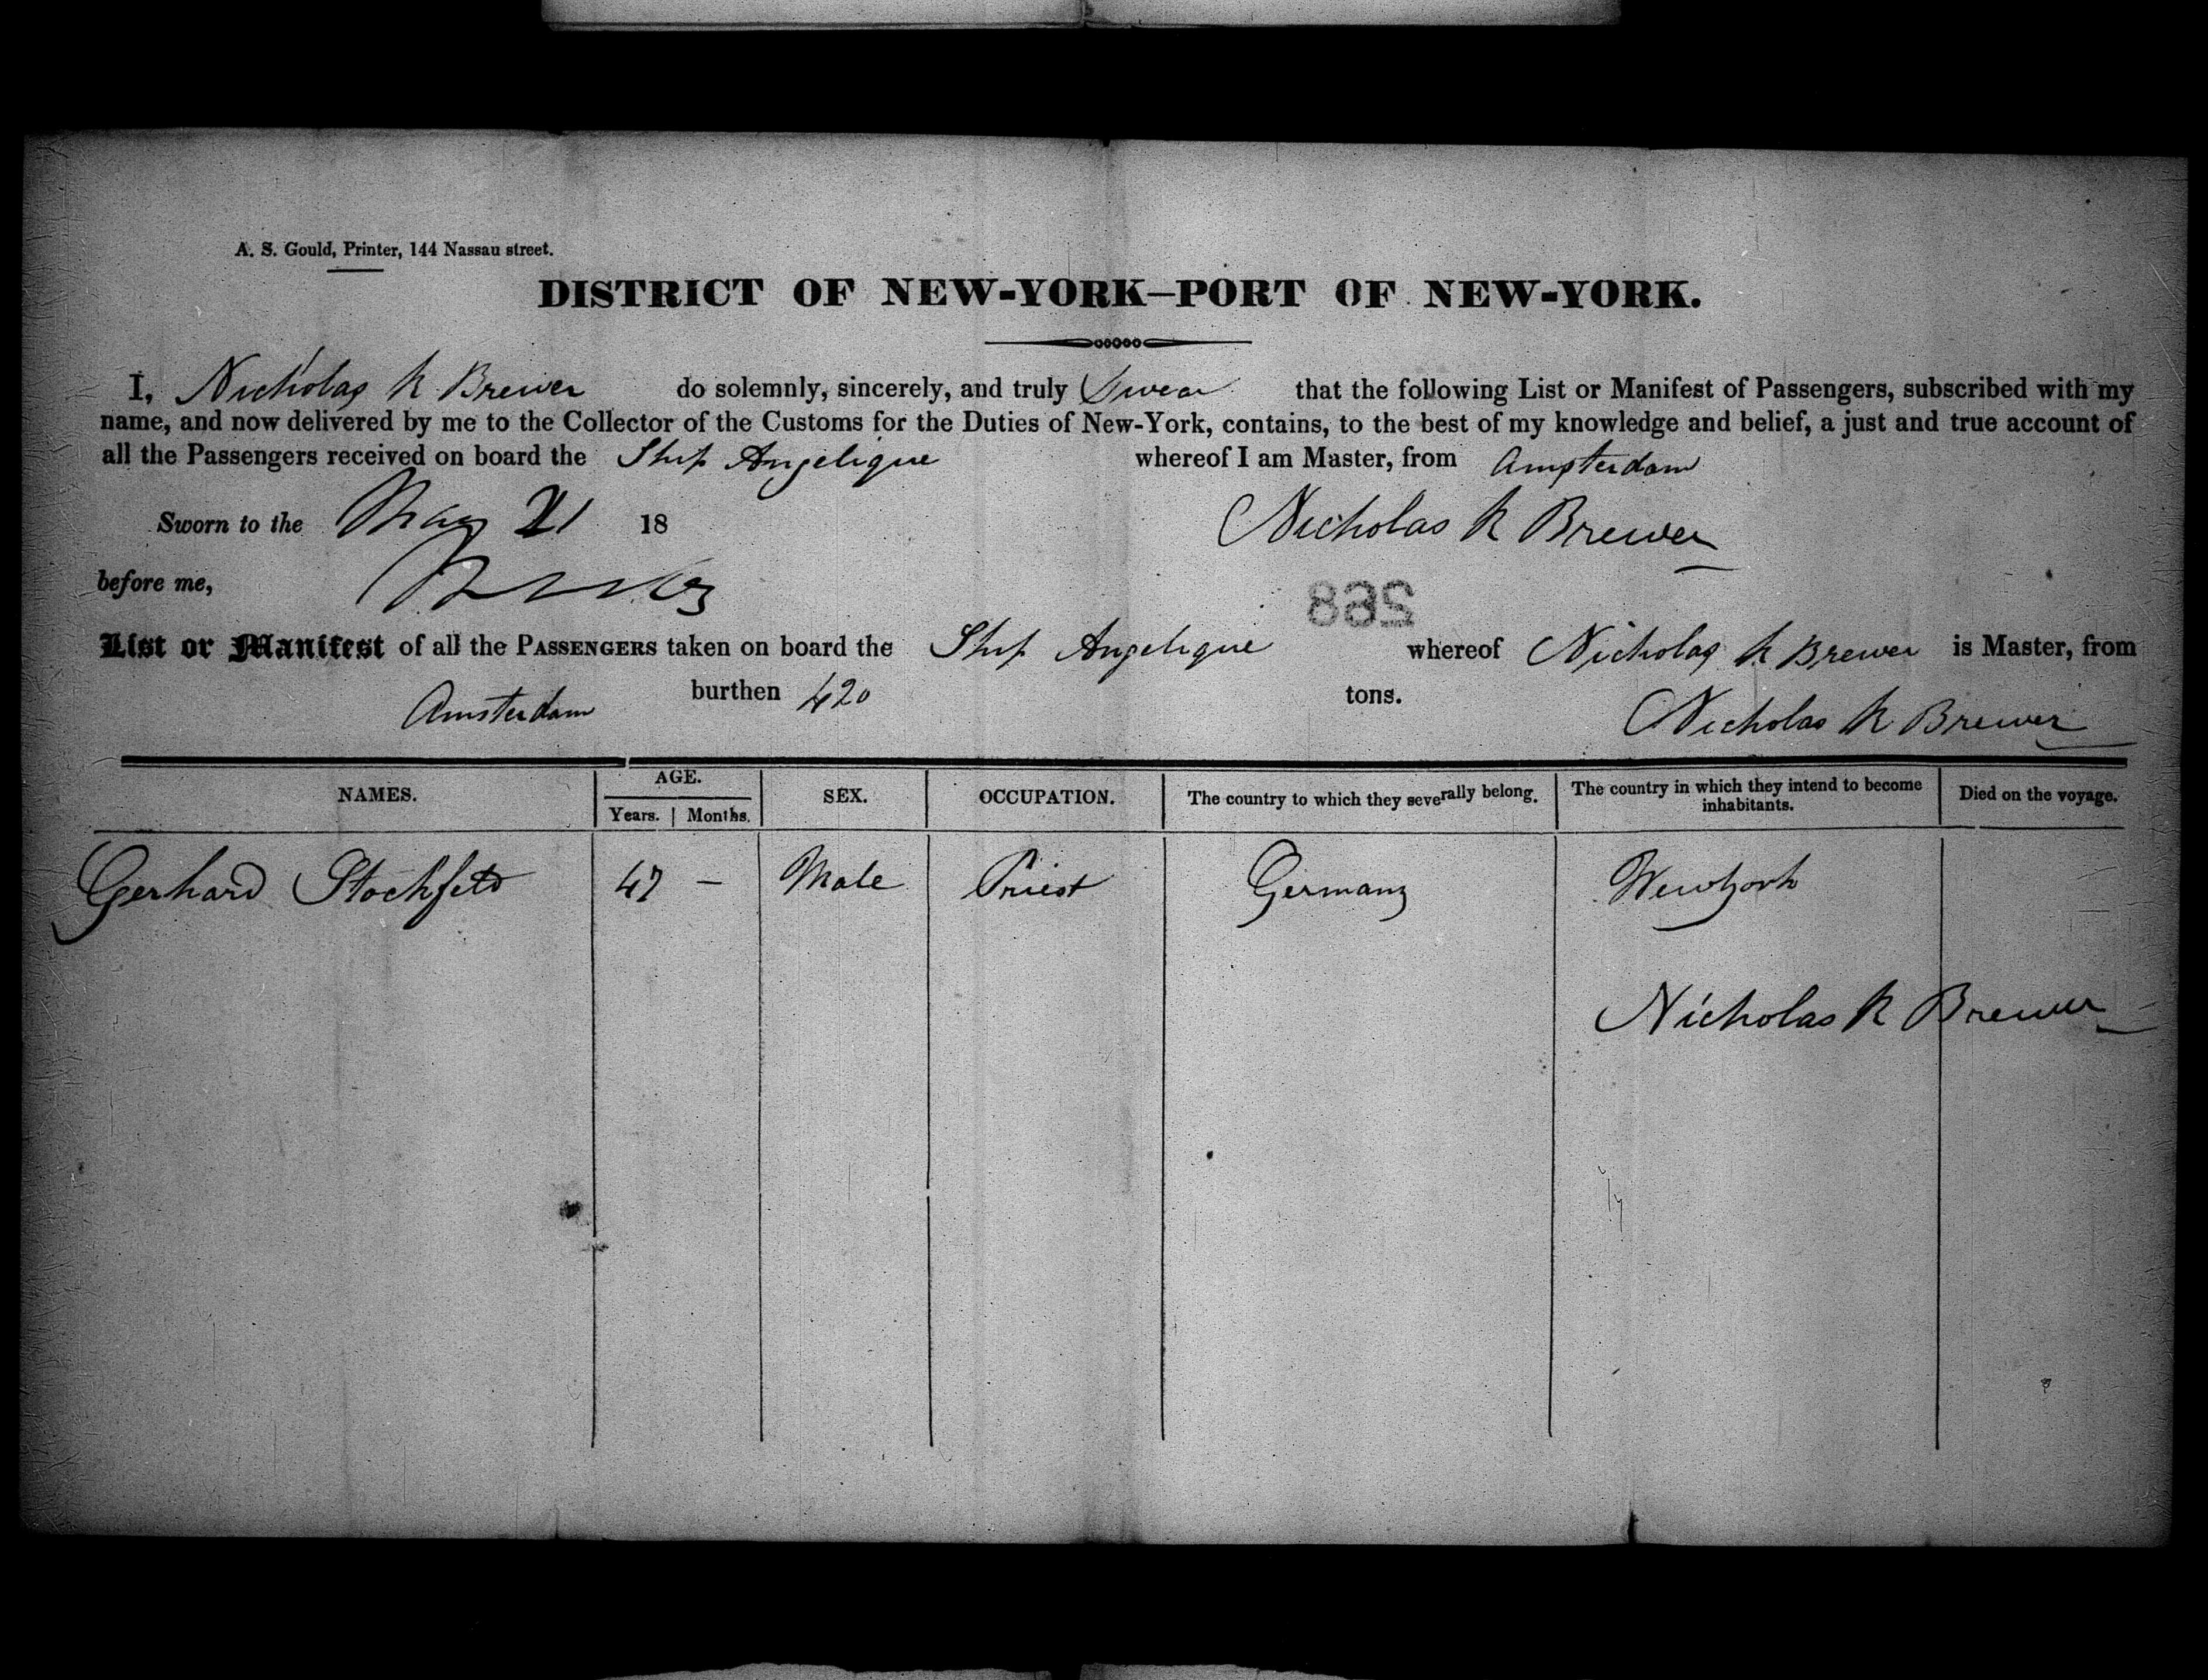 A. S. Gould, Printer, 144 Nassau street.
DISTRICT OF NEW-YORK—PORT OF NEW-YORK.
I, Nicholas R Brewer do solemnly, sincerely, and truly Swear that the following List or Manifest of Passengers, subscribed with my
name, and now delivered by me to the Collector of the Customs for the Duties of New-York, contains, to the best of my knowledge and belief, a just and true account of
all the Passengers received on board the Ship Angelique whereof I am Master, from Amsterdam
Sworn to the May 21 18 Nicholas R Brewer
before me,
268
List or Manifest of all the PASSENGERS taken on board the Ship Angelique whereof Nicholas R Brewer is Master, from
Amsterdam burthen 420 tons.
Nicholas R Brewer
NAMES. AGE. Years. Months. SEX. OCCUPATION. The country to which they severally belong. The country in which they intend to become inhabitants. Died on the voyage.
Gerhard Stockfeld 47 — Male Priest Germany Newyork
Nicholas R Brewer